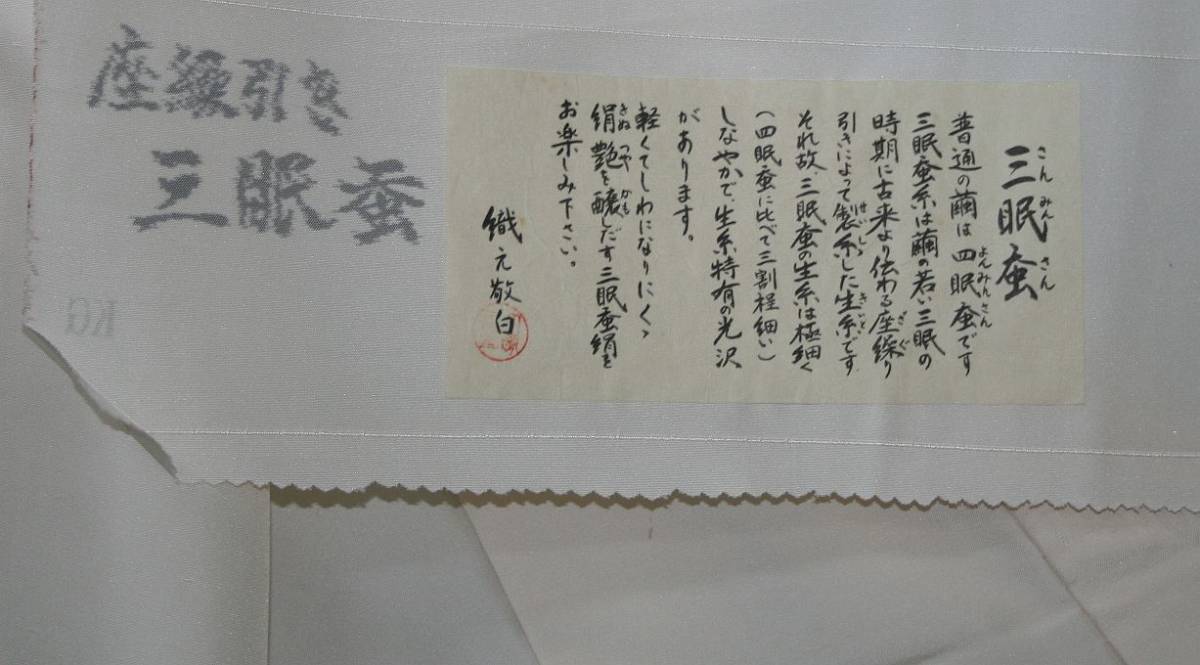 座繰引き
三眠蚕
三眠蚕
こんみんさん
普通の繭は四眠蚕です
よんみんさん
三眠蚕糸は繭の若い三眠の
時期に古来より伝わる座繰り
ざぐ
引きによって製糸した生糸です
せいし
きいと
それ故、三眠蚕の生糸は極細く
(四眠蚕に比べて三割程細い)
しなやかで、生糸特有の光沢
があります。
軽くてしわになりにくゝ
絹艶を醸しだす三眠蚕絹を
きぬつや
かも
お楽しみ下さい。
織元敬白
KG